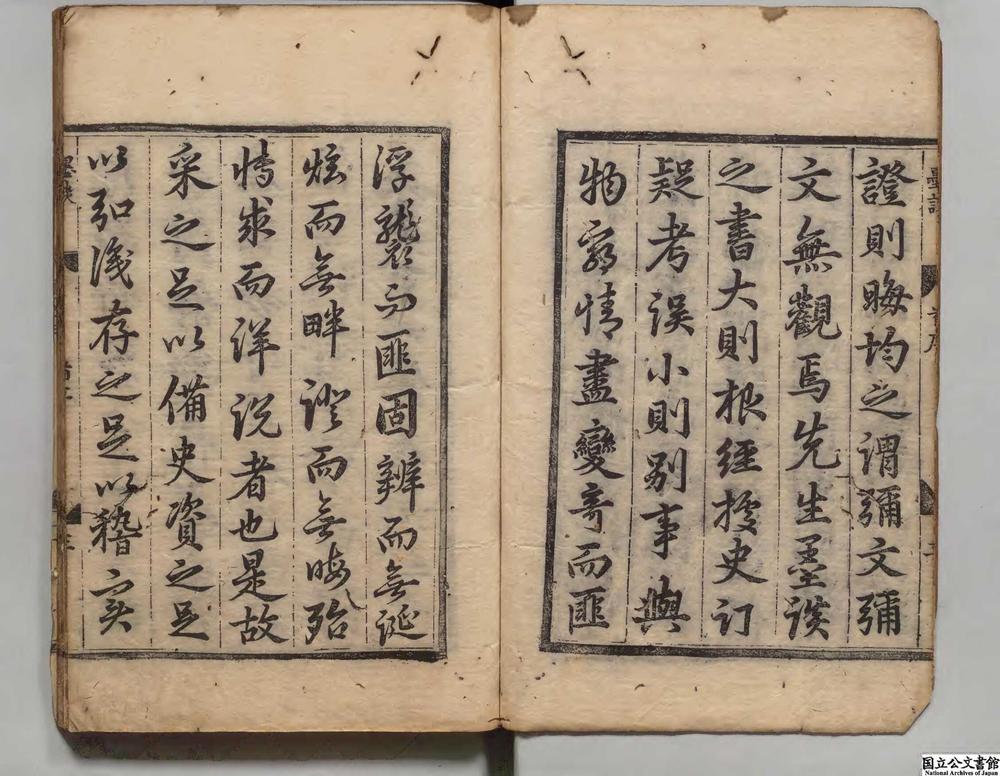 墨談
證則晦均之謂彌文彌
文無觀焉先生墨談
之書大則根經據史订
疑考误小則别事與
物窮情盡變奇而匪
浮襲而匪固辨而無诞
炫而無畔證而無晦殆
博求而详说者也是故
采之足以備史資之足
以弘淺存之足以稽实
国立公文書館
National Archives of Japan